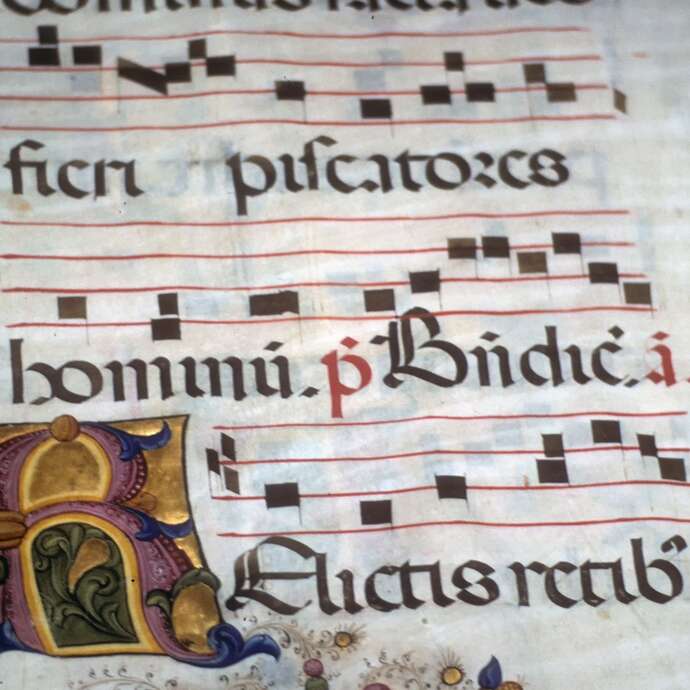 fieri piscatores
hominũ. p̃ Bñdic̃. ã.
RElictis retib⁹